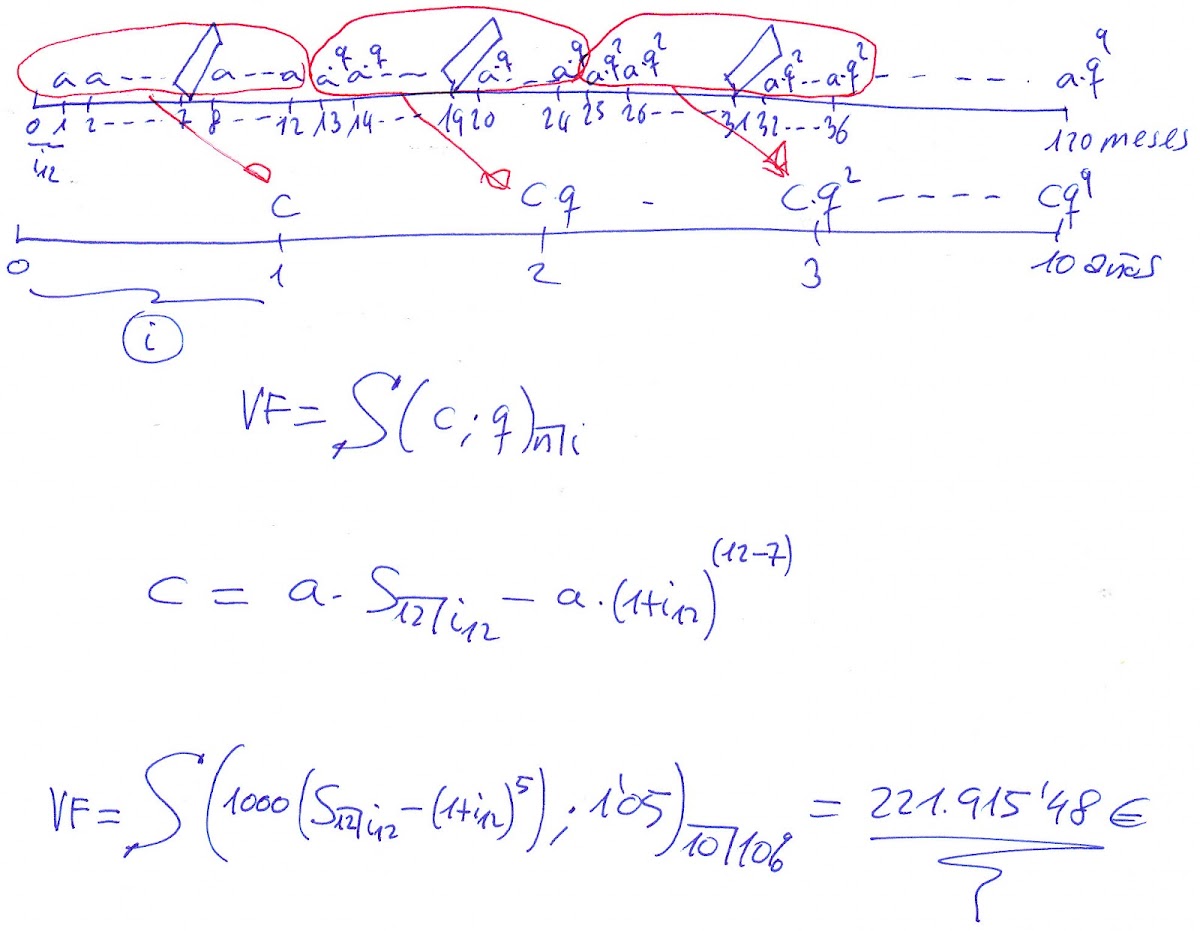 a a --- a --- a a·q a·q --- a·q --- a·q a·q² a·q² a·q² --- a·q² --- a·q⁹
0 1 2 ---- 7 8 ---- 12 13 14 ---- 19 20 24 25 26 ---- 31 32 --- 36 120 meses
i₁₂
C C·q - C·q² ---- Cq⁹
0 1 2 3 10 años
i
VF = S(C; q)n⌉i
C = a · S12⌉i₁₂ − a · (1+i₁₂)^(12−7)
VF = S(1000(S12⌉i₁₂ − (1+i₁₂)⁵); 1'05)10⌉10% = 221.915'48 €